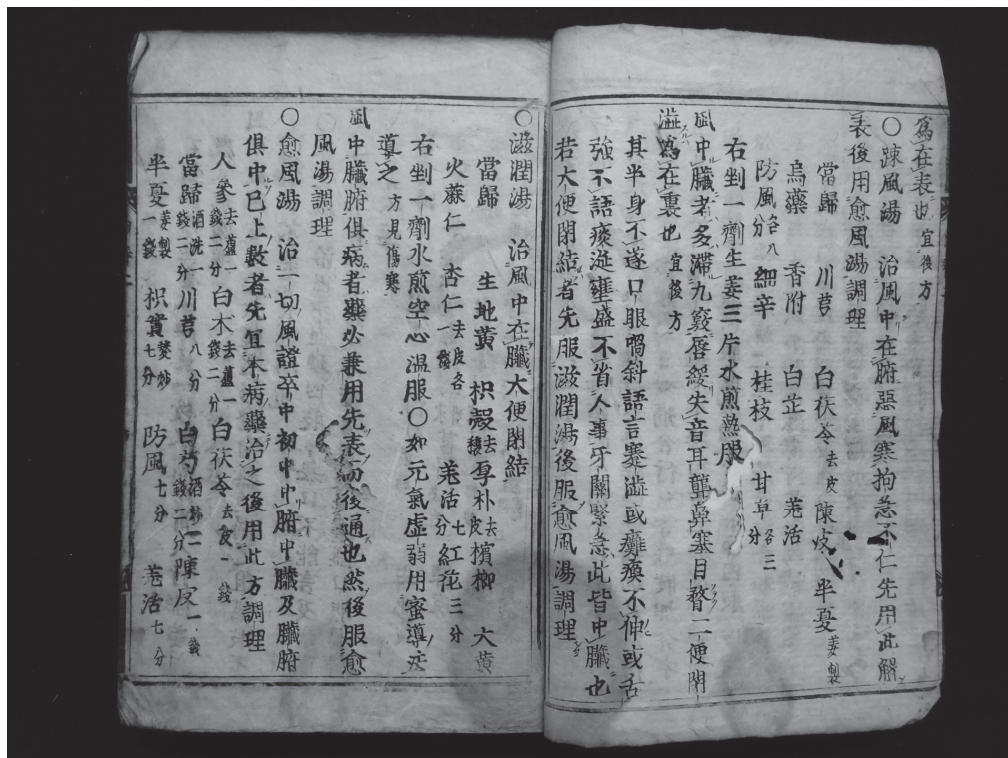 為在表也宜後方
○踈風湯　治風中在腑惡風寒拘急不仁先用此解
表後用愈風湯調理
當歸　川芎　白茯苓去皮　陳皮　半夏姜製
烏藥　香附　白芷　羌活
防風各八分　細辛　桂枝　甘草各三分
右剉一劑生姜三片水煎熱服
風中臟者多滯九竅唇緩失音耳聾鼻塞目瞀二便閉
澁為在裏也宜後方
其半身不遂口眼喎斜語言蹇澁或癱瘓不伸或舌
強不語痰涎壅盛不省人事牙關緊急此皆中臟也
若大便閉結者先服滋潤湯後服愈風湯調理
○滋潤湯　治風中在臟大便閉結
當歸　生地黃　枳殼去穰　厚朴去皮　檳榔　大黃
火蔴仁　杏仁去皮各一錢　羌活七分　紅花三分
右剉一劑水煎空心温服○如元氣虛弱用蜜導法
導之方見傷寒
風中臟腑俱病者藥必兼用先表而後通也然後服愈
風湯調理
○愈風湯　治一切風證卒中初中中腑中臟及臟腑
俱中已上數者先宜本病藥治之後用此方調理
人參去蘆一錢二分　白朮去蘆一錢二分　白茯苓去皮一錢
當歸酒洗一錢二分　川芎八分　白芍酒炒一錢二分　陳皮一錢
半夏姜製一錢　枳實麩炒七分　防風七分　羌活七分